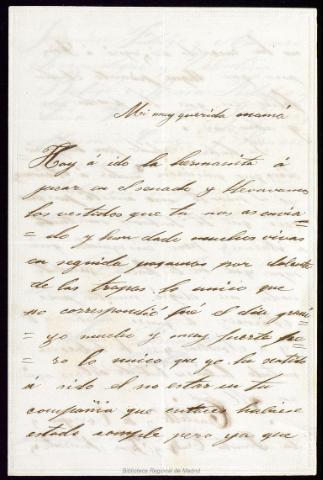 Mi muy querida mamá
Hoy á ido la hermanita á
jurar en el senado y llevavamos
los vestidos que tu nos as envia=
=do y han dado muchos vivas
en seguida pasamos por delante
de las tropas lo unico que
no correspondió fué el dia grani=
=zo mucho y muy fuerte pe=
=ro lo unico que yo he sentido
á sido el no estar en tu
compañia que entonces hubiese
estado completo pero ya que
Biblioteca Regional de Madrid